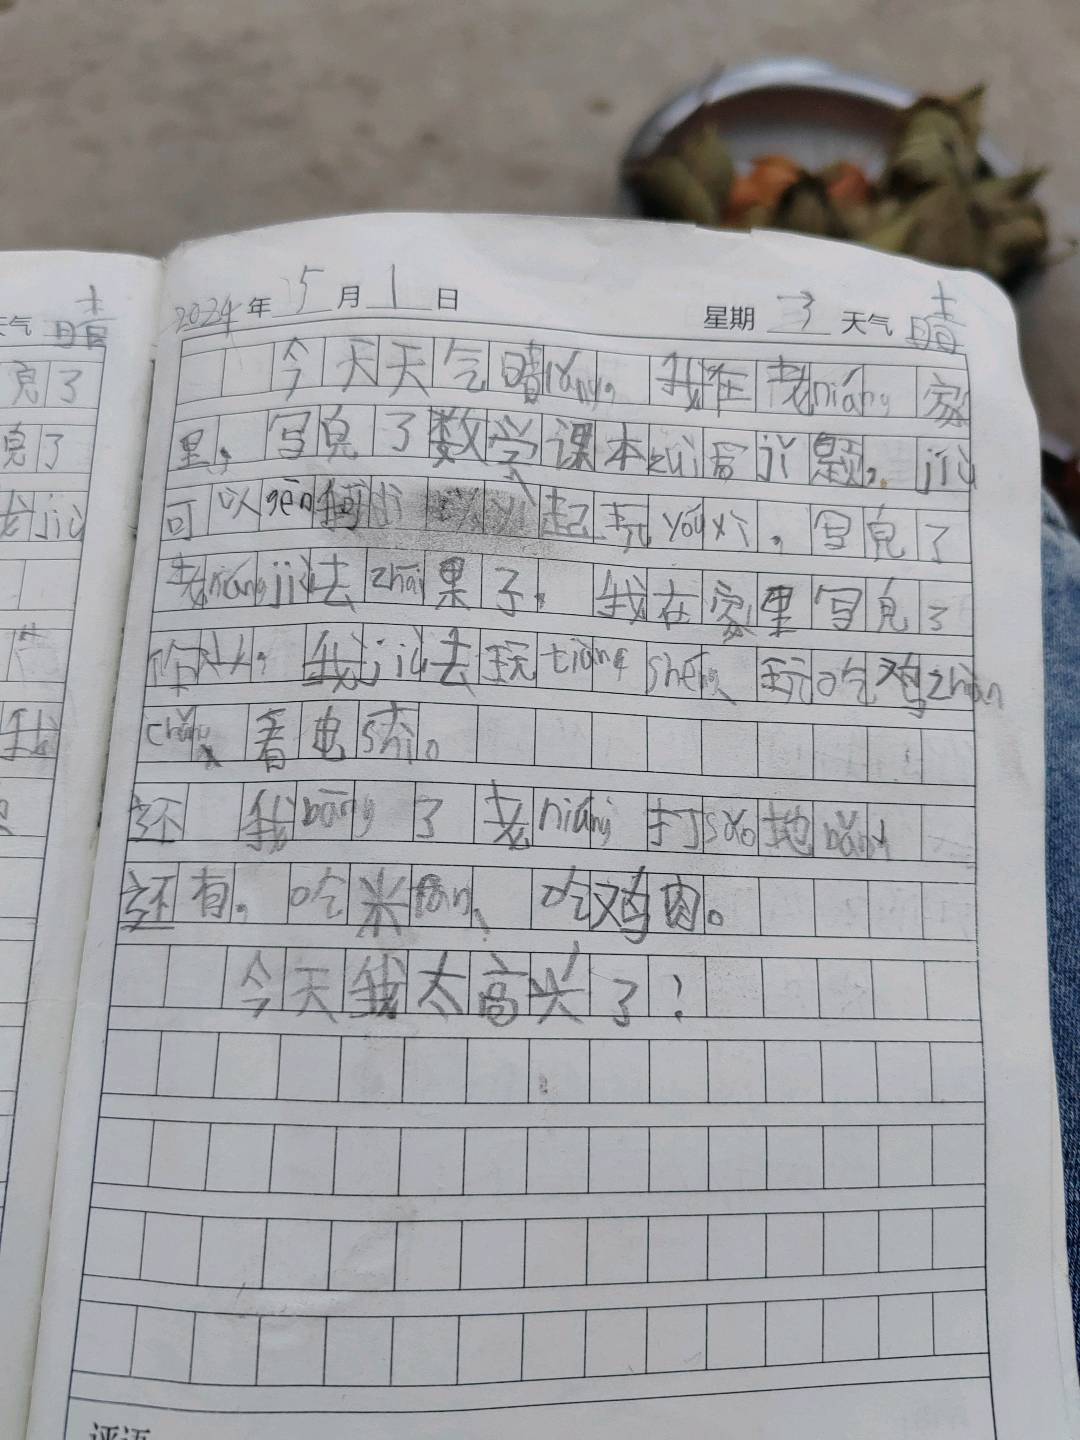 天气 晴
2024年 5月1日 星期 3 天气 晴
完了 今天天气晴lǎng，我在老niáng家
完了 里，写完了数学课本zuì后jǐ题，jiù
老jiù 可以gēn 起玩yóu xì，写完了
老niángjiù去zhāi果子，我在家里写完了
作业，我jiù去玩tiàoqí shéng、玩吃鸡zhàn
我 chǎng、看电shì。
还 我bāng了老niáng打sǎo地bǎn
还有。吃米fàn、吃鸡肉。
今天我太高兴了！
评语